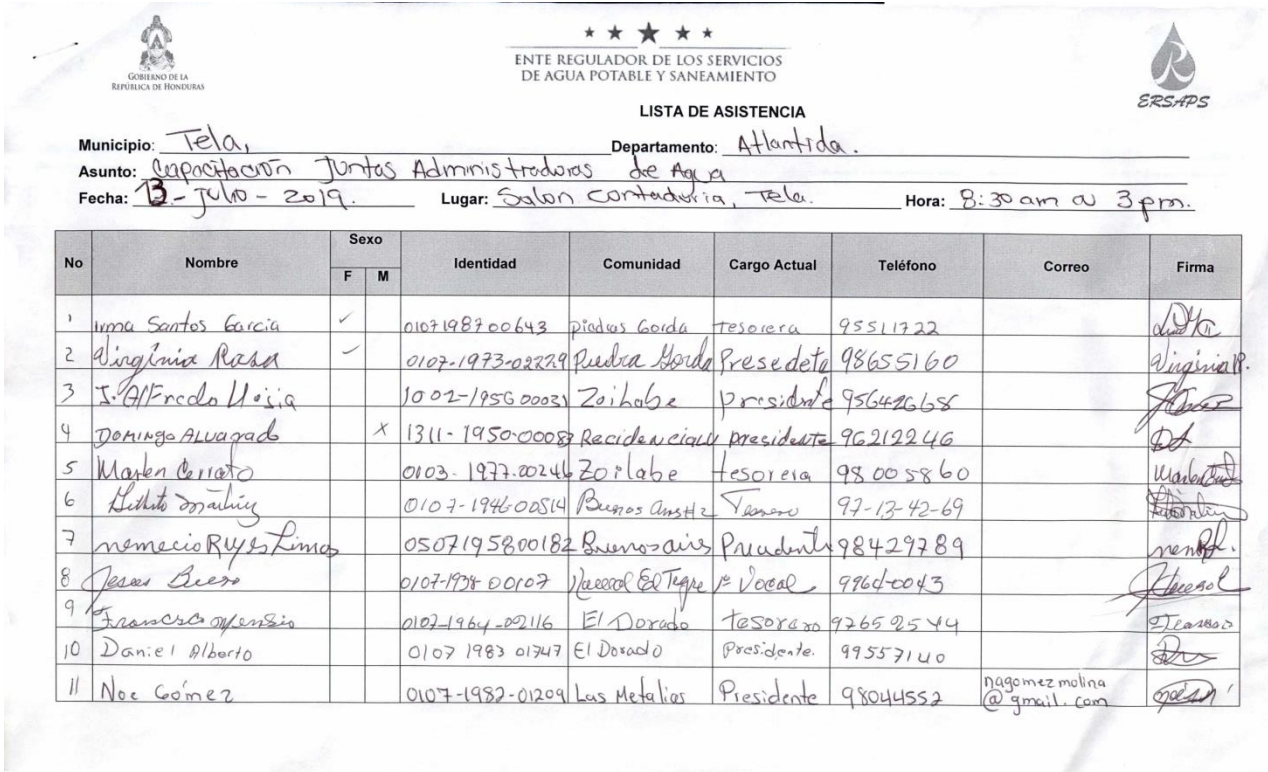 GOBIERNO DE LA
REPÚBLICA DE HONDURAS
ENTE REGULADOR DE LOS SERVICIOS
DE AGUA POTABLE Y SANEAMIENTO
ERSAPS
LISTA DE ASISTENCIA
Municipio: Tela, Departamento: Atlantida.
Asunto: Capacitación Juntas Administradoras de Agua
Fecha: 13 - Julio - 2019. Lugar: Salon Contaduria, Tela. Hora: 8:30 am a 3 pm.
No Nombre Sexo F M Identidad Comunidad Cargo Actual Teléfono Correo Firma
1 Irma Santos Garcia ✓ 0107198700643 Piadras Gorda tesorera 95511722
2 Virginia Rosa ✓ 0107-1973-02229 Piedra Gorda Presedeta 98655160 Virginia R.
3 J. Alfredo 1002-1956 00031 Zoilabe presidente 95642665
4 DOMINGO ALVARADO X 1311-1950-00083 presidente 96212246 DA
5 Marlen Cerrato 0103-1977-00246 Zoilabe tesorera 98005860 Marlen
6 0107-1946-00514 Buenos 97-13-42-69
7 nemecio Ruyes 0507195800182 Buenos aires 98429789
8 Jesus 0107-1938-00107 El Tigre 1º Vocal 9964-0043
9 0107-1964-02116 El Dorado tesorero 97652544
10 Daniel Alberto 0107 1983 01747 El Dorado Presidente. 99557140
11 Noe Gómez 0107-1982-01209 Las Metalias Presidente 98044552 nagomezmolina
@gmail.com